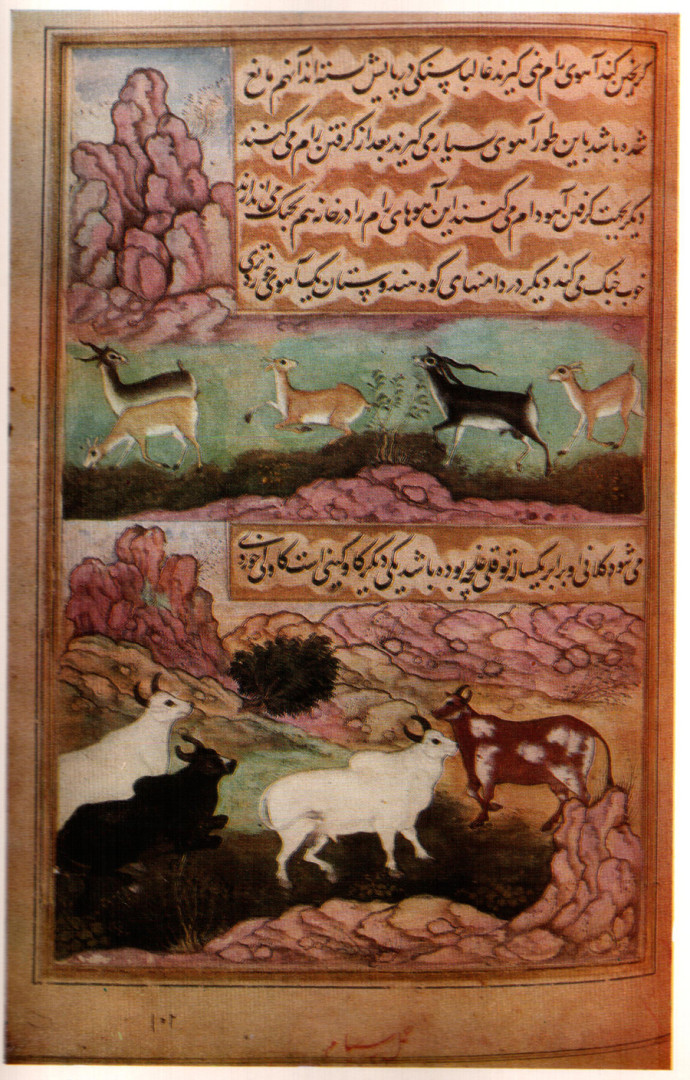 کریختن کند آهوی رام می کیرند غالبا سنکی در پایش بسته اند آنهم مانع
شده باشد باین طور آهوی بسیار می کیرند بعد از کرفتن رام می کنند
دیکر بجهت کرفتن آهو دام می کنند این آهوهای رام را در خانه هم بجنک می اندازند
خوب جنک می کند دیکر در دامنهای کوه هندوستان یک آهوی خوردتری
می شود کلانی او برابر یکساله توقلی غلچه بوده باشد یکی دیکر کاو کینی است کاو